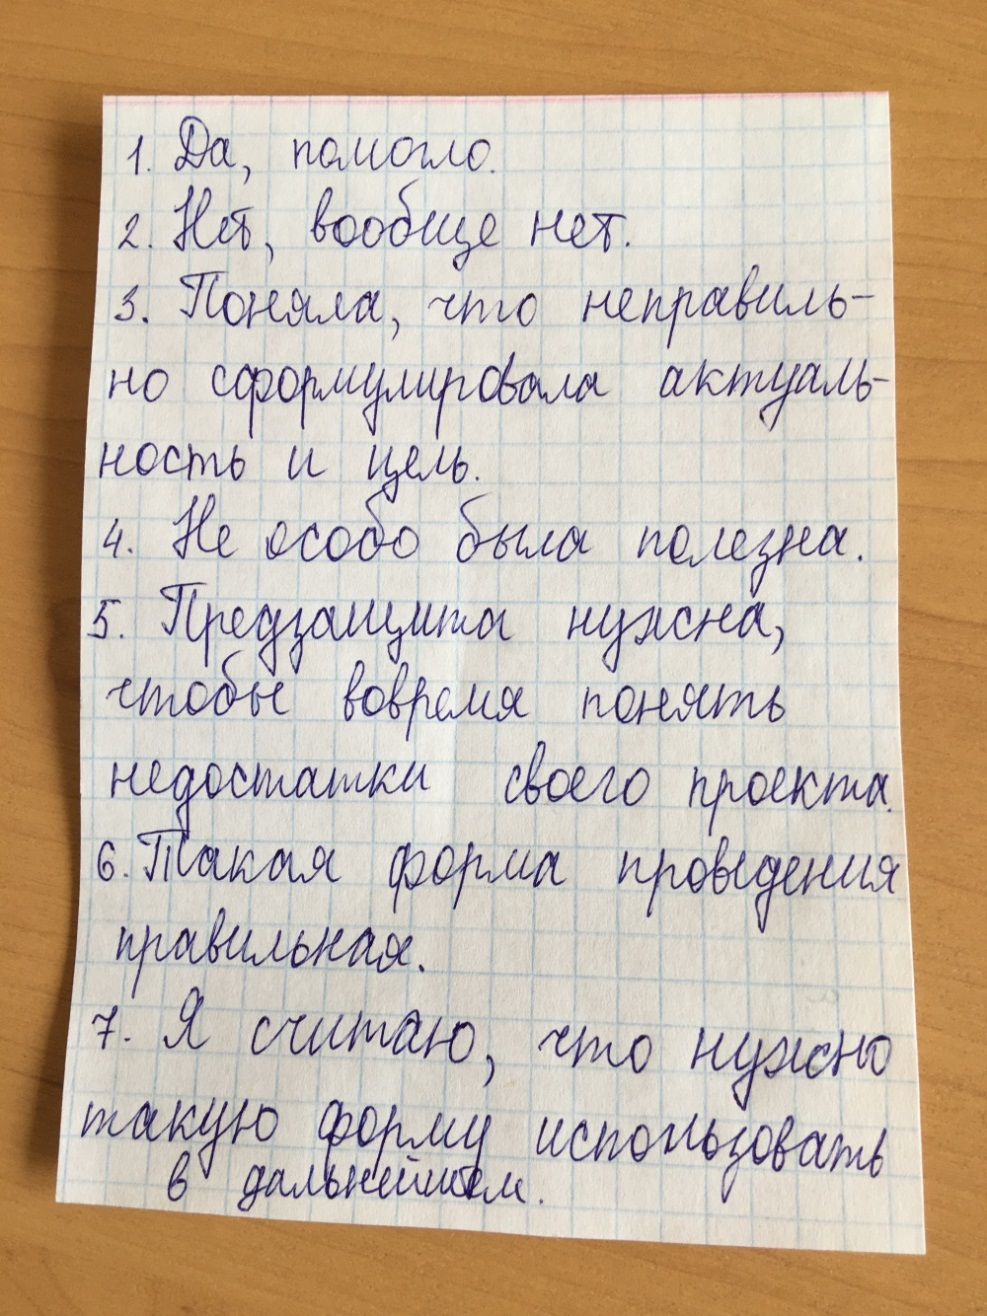 1. Да, помогло.
2. Нет, вообще нет.
3. Поняла, что неправиль-
но сформулировала актуаль-
ность и цель.
4. Не особо была полезна.
5. Предзащита нужна,
чтобы вовремя понять
недостатки своего проекта.
6. Такая форма проведения
правильная.
7. Я считаю, что нужно
такую форму использовать
в дальнейшем.